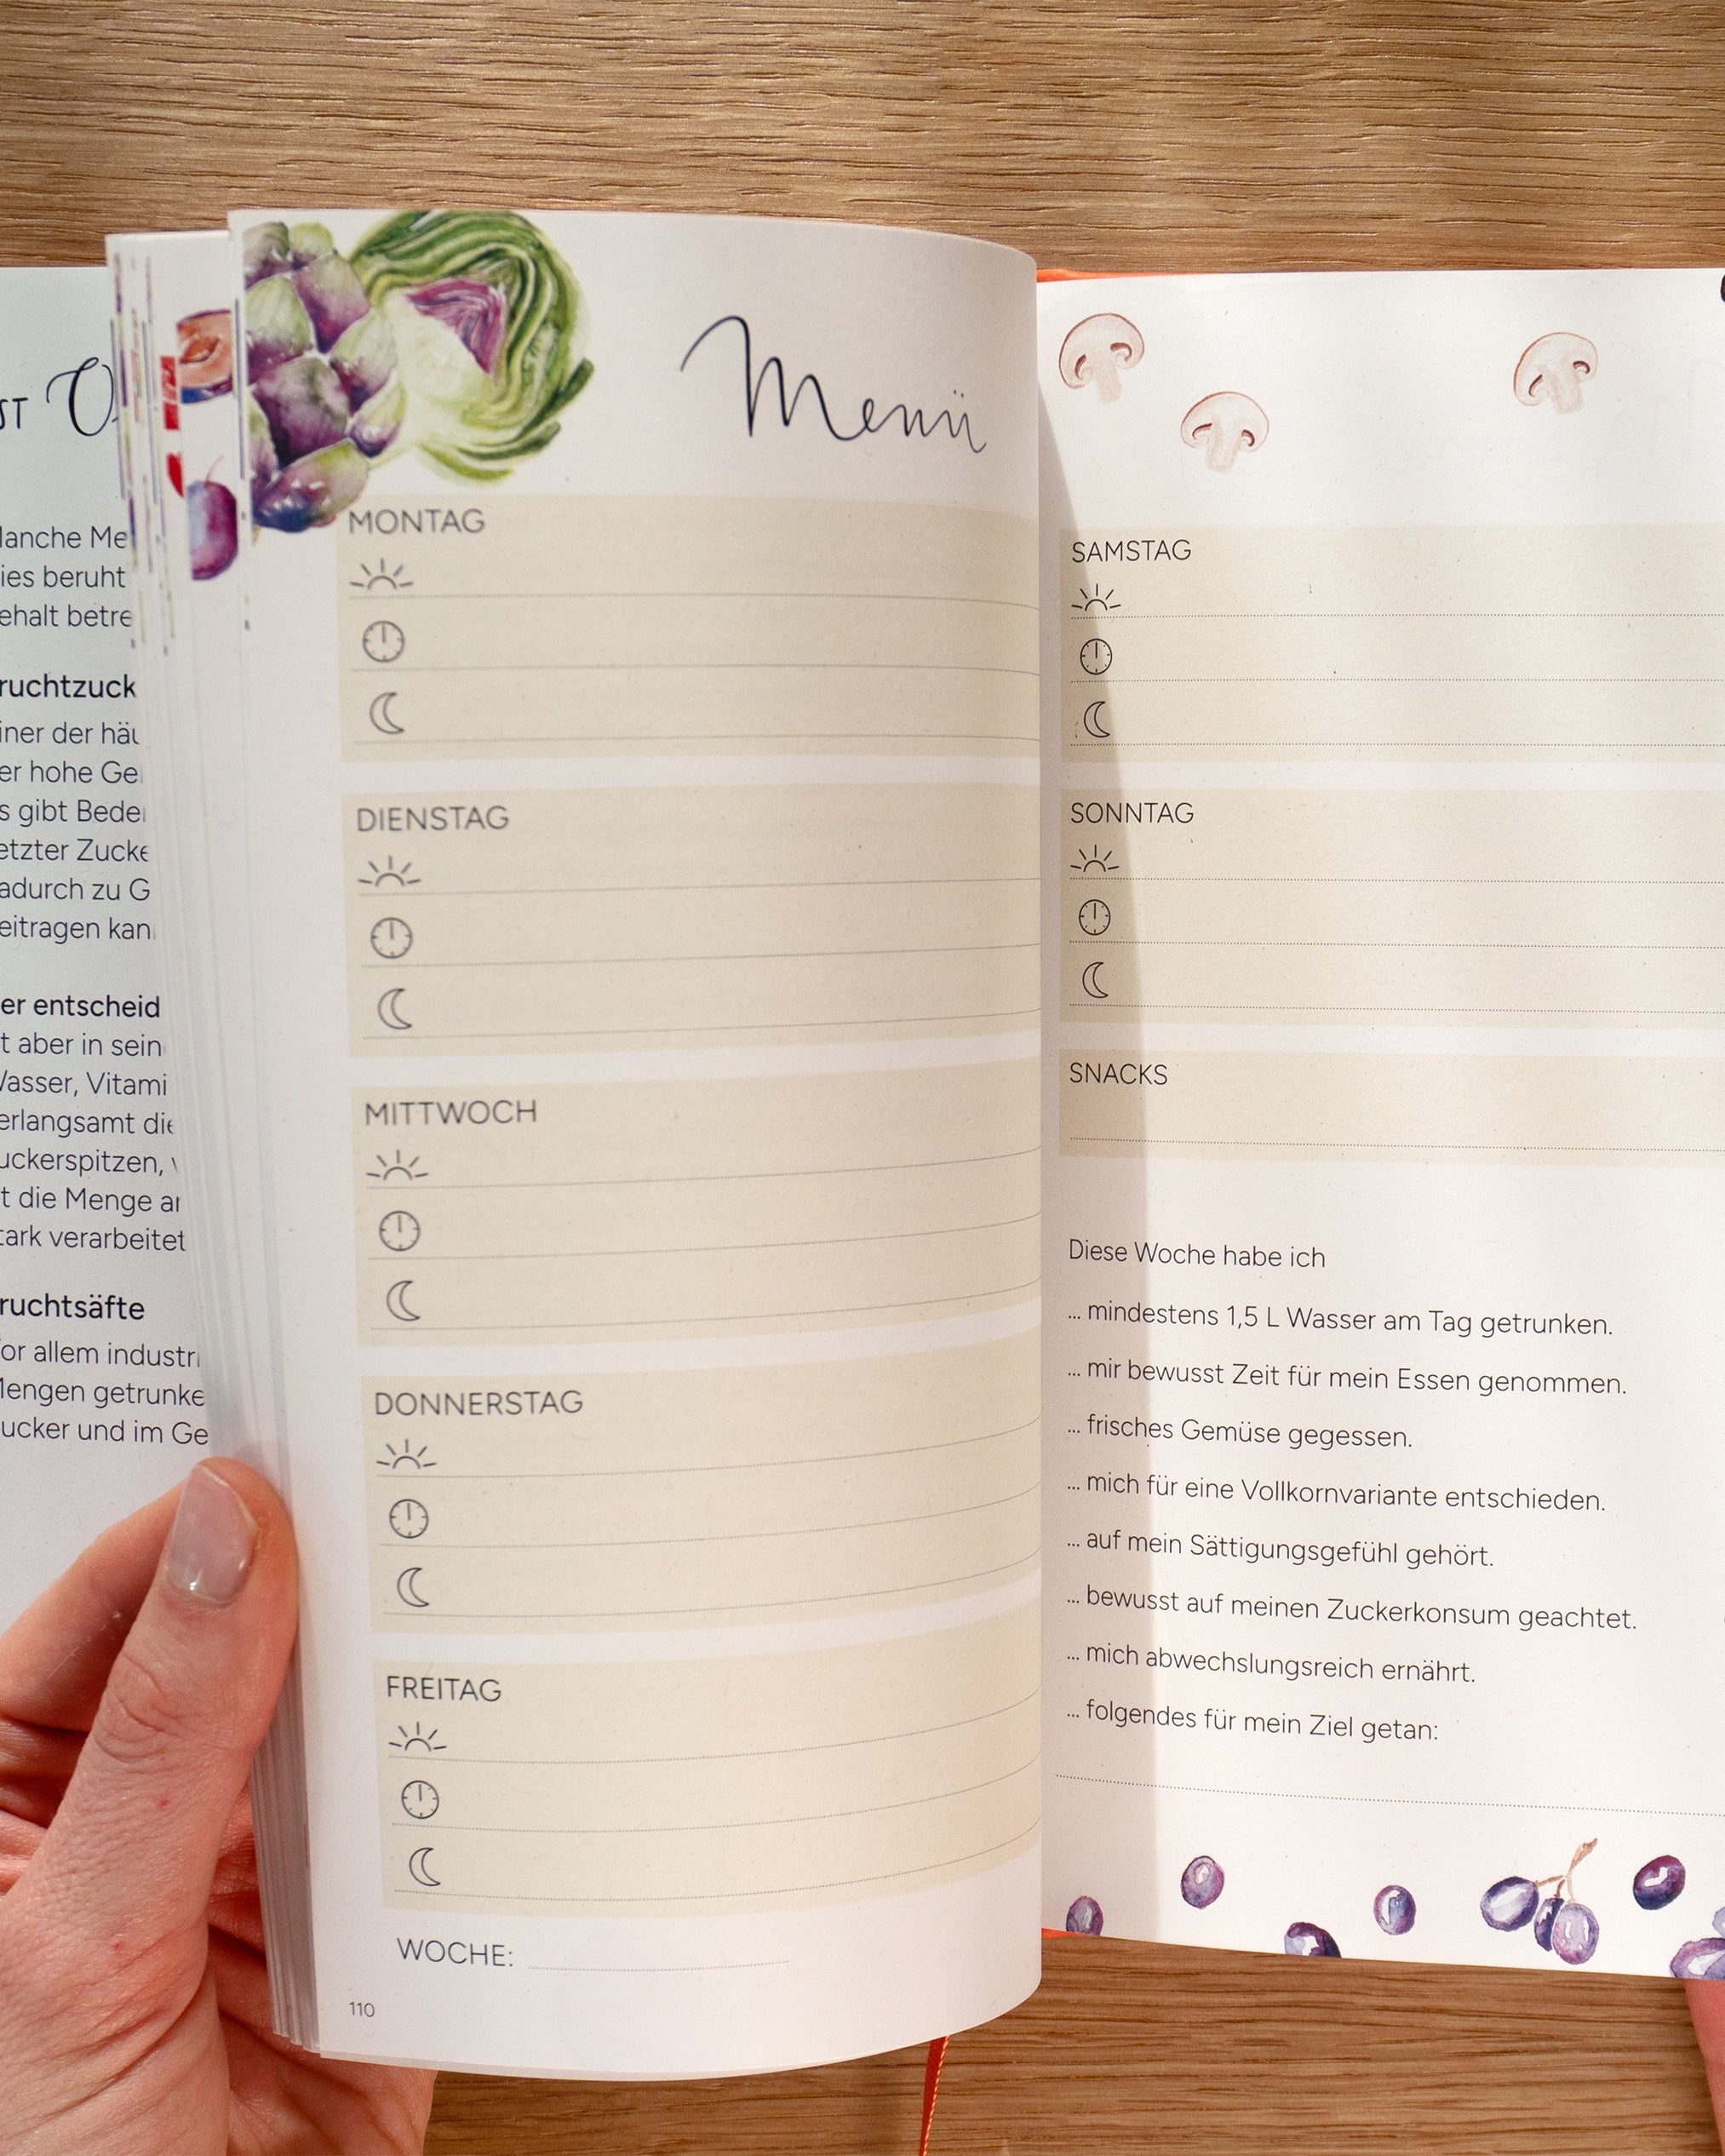 Menü
MONTAG
DIENSTAG
MITTWOCH
DONNERSTAG
FREITAG
WOCHE:
110
SAMSTAG
SONNTAG
SNACKS
Diese Woche habe ich
... mindestens 1,5 L Wasser am Tag getrunken.
... mir bewusst Zeit für mein Essen genommen.
... frisches Gemüse gegessen.
... mich für eine Vollkornvariante entschieden.
... auf mein Sättigungsgefühl gehört.
... bewusst auf meinen Zuckerkonsum geachtet.
... mich abwechslungsreich ernährt.
... folgendes für mein Ziel getan:
ST O
anche Me
ies beruht
ehalt betre
ruchtzuck
iner der häu
er hohe Ge
s gibt Bede
etzter Zucke
adurch zu G
eitragen kan
er entscheid
t aber in sein
asser, Vitami
erlangsamt die
uckerspitzen,
t die Menge ar
tark verarbeitet
ruchtsäfte
or allem industr
engen getrunke
ucker und im Ge